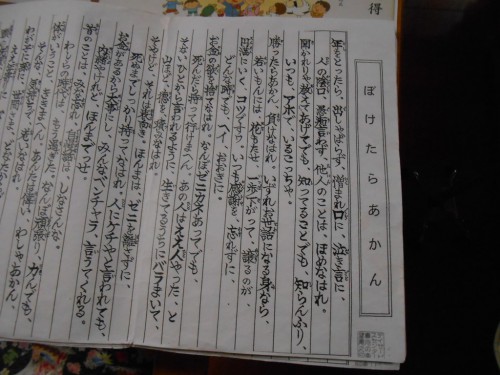 得
ぼけたらあかん
年をとったら、出しゃばらず、憎まれ口に、泣き言に、
人の陰口、愚痴言わず、他人のことは、ほめなはれ。
聞かれりゃ教えてあげても、知ってることでも、知らんふり、
いつも、アホで、いるこっちゃ。
勝ったらあかん、負けなはれ、いずれお世話になる身なら、
若いもんには、花もたせ、一歩下がって、譲るのが、
円満にいく、コツですわ。いつも感謝を、忘れずに、
どんな時でも、ヘイ、おおきに。
お金の欲を捨てなはれ、なんぼゼニカネあってでも、
死んだら持って行けまへん、あの人はええ人やった、と
そないひとから言われるように、生きてるうちにバラまいて、
山ほど徳を積みなはれ
そやけど、それは表向き。ほんまは、ゼニを離さずに、
死ぬまでしっかり持ってなはれ。人にケチやと言われても、
お金があるから大事にし、みんなベンチャラ、言うてくれる。
内緒やけれど、ほんまでっせ。
昔のことは、みな忘れ、自慢話は、しなさんな。
わしらの時代は、もう過ぎた。なんぼ頑張り、力んでも、
いうこと、ききまへん、あんたは偉い、わしゃあかん、
そんな気持ちで、